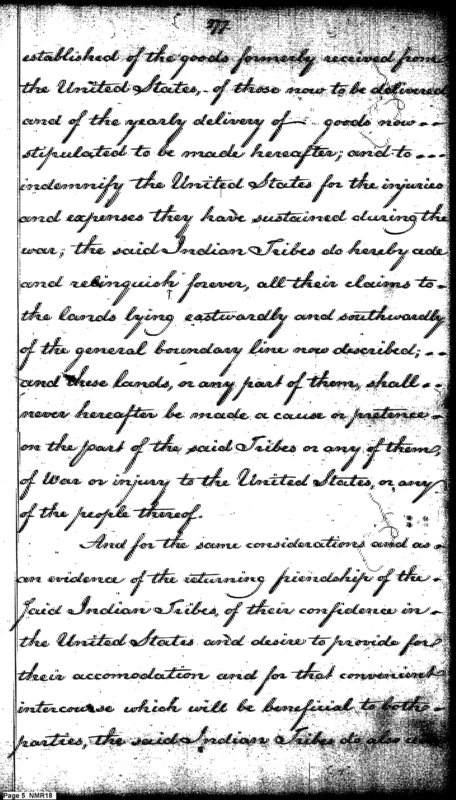 77
established of the goods formerly received from
the United States, - of those now to be delivered
and of the yearly delivery of goods now --
stipulated to be made hereafter; and to ---
indemnify the United States for the injuries
and expenses they have sustained during the
war; the said Indian Tribes do hereby cede
and relinquish forever, all their claims to -
the lands lying eastwardly and southwardly
of the general boundary line now described; --
and these lands, or any part of them, shall --
never hereafter be made a cause or pretence -
on the part of the said Tribes or any of them,
of War or injury to the United States, or any
of the people thereof.
And for the same considerations and as -
an evidence of the returning friendship of the -
said Indian Tribes, of their confidence in -
the United States and desire to provide for
their accomodation and for that convenient
intercourse which will be beneficial to both -
parties, the said Indian Tribes do also cede
Page 5 NMR18